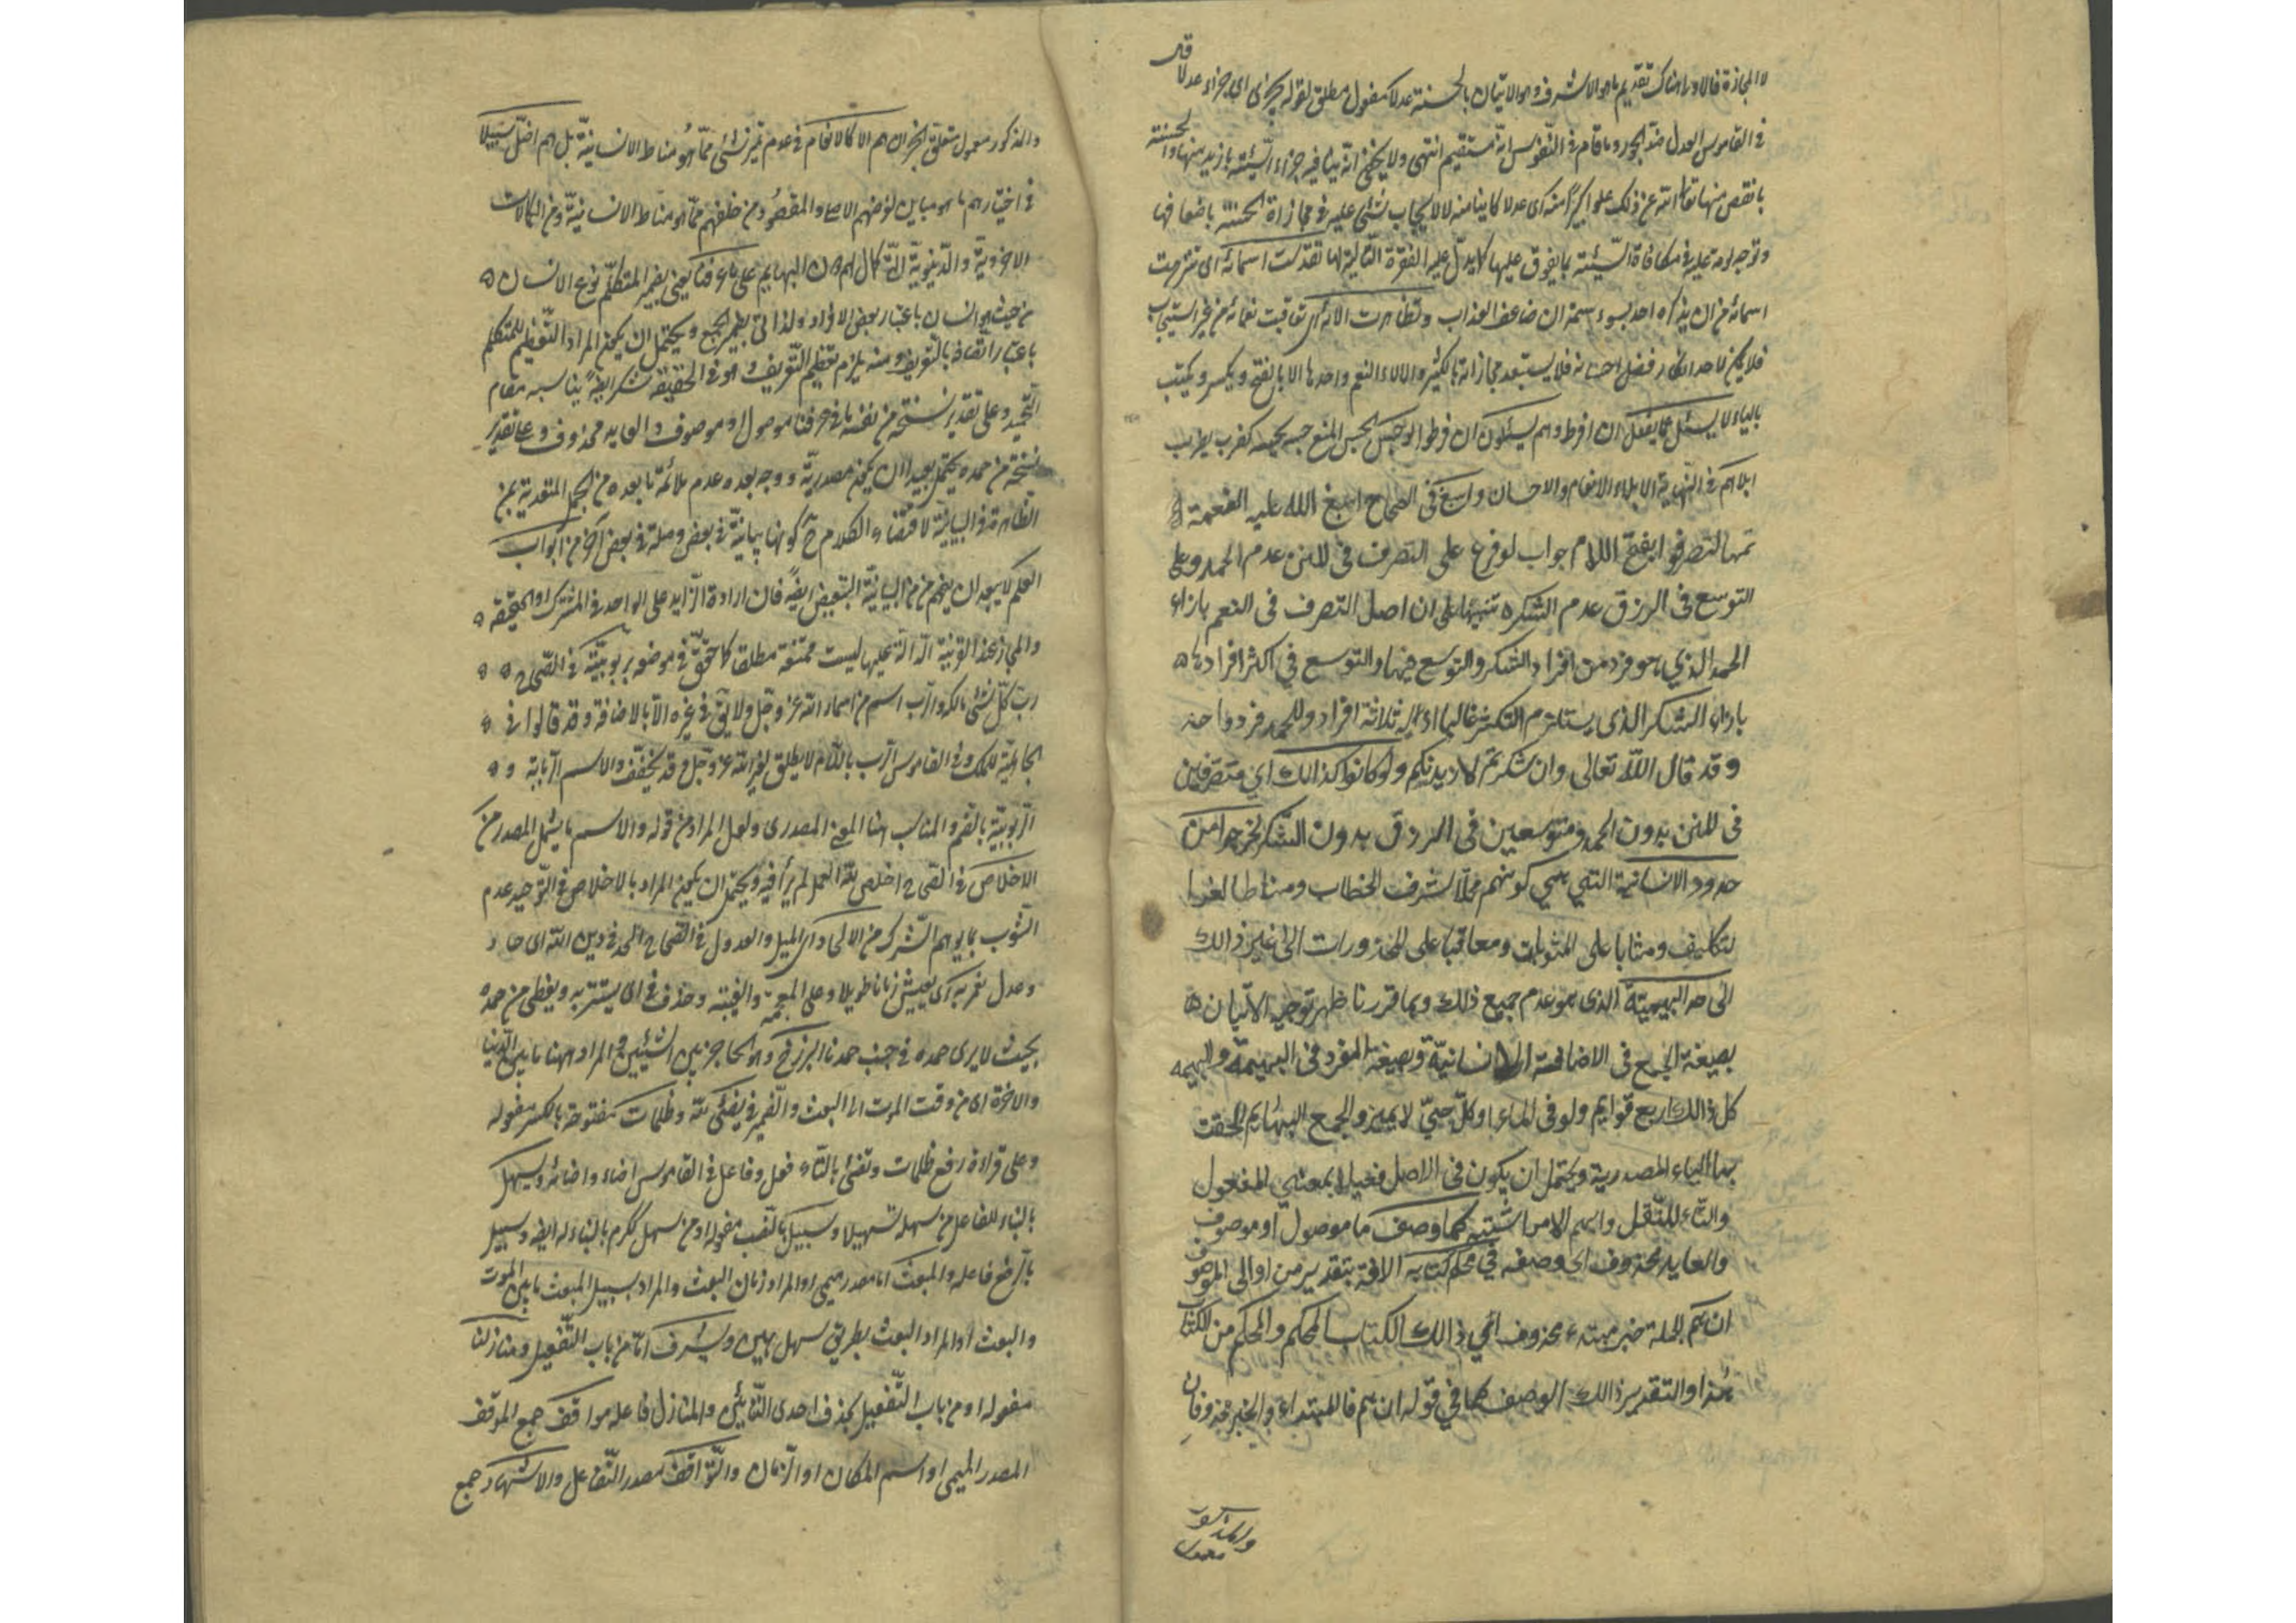 لا المجازة فالاولى هناك تقديم ما هو الاشرف وهو الاتيان بالحسنة عدلا مفعول مطلق لقوله يجزى اى جزاء عدلا قال
فى القاموس العدل ضد الجور وما قام فى النفوس انه مستقيم انتهى ولا يخفى انه ينافيه جزاء السيئة بازيد منها والحسنة
بانقص منها تعالى الله عن ذلك علوا كبيرا منه اى عدلا كاينا منه لا لايجاب شئ عليه فى مجازاة الحسنة باضعافها
وتوجه لومة عليه فى مكافاة السيئة بما يفوق عليها كما يدل عليه الفقرة التالية لها تقدست اسمائه اى تنزهت
اسمائه من ان يذكره احد بسوء سمة ان ضاعف العذاب وتظاهرت الائه اى تعاقبت نعمائه من غير استيجاب
فلا يمكن لاحد انكار فضل احسانه فلا يستبعد مجازاته بالكثير والالاء النعم واحدها الا بالفتح ويكسر ويكتب
بالياء لا يسئل عما يفعل ان افرط وهم يسئلون ان فرطوا لو حبس الحبس المنع حبسه يحبسه كضرب يضرب
ابلاهم فى النهاية الابلاء الانعام والاحسان واسبغ فى الصحاح اسبغ الله عليه النعمة اى
تمها لتصرفوا بفتح اللام جواب لو فرع على التصرف فى المنن عدم الحمد وعلى
التوسع فى الرزق عدم الشكر تنبيها على ان اصل التصرف فى النعم بازاء
الحمد الذي هو فرد من افراد الشكر والتوسع فيها والتوسع في اكثر افرادها
بازاء الشكر الذى يستلزم التكثر غالبا اذ له ثلاثة افراد وللحمد فرد واحد
وقد قال الله تعالى وان شكرتم لازيدنكم ولو كانوا كذالك اي متصرفين
فى المنن بدون الحمد ومتوسعين فى الرزق بدون الشكر لخرجوا من
حدود الانسانية التي هي كونهم محلا لشرف الخطاب ومناطا لغوا
لتكليف ومثابا على المثوبات ومعاقبا على المحذورات الى غير ذالك
الى حد البهيمية الذى هو عدم جميع ذلك وبما قررنا ظهر توجيه الاتيان
بصيغة الجمع فى الاضافة الى الانسانية وبصيغة المفرد فى البهيمة والبهيمه
كل ذالك اربع قوايم ولو فى الماء او كل حيّ لا يميز والجمع البهائم الحقت
بها الياء المصدرية ويحتمل ان يكون فى الاصل فعيلا بمعنى المفعول
والتاء للنقل واسم الامر اشتبه كما وصف ما موصول او موصوف
والعايد محذوف اي وصفه في محكم كتابه الاضافة بتقدير من او الى الموصوف
ان هم الجملة خبر مبتدء محذوف اى ذالك الكتاب المحكم والمحكم من الكتاب
هذا والتقدير ذالك الوصف كما في قوله ان هم فالمبتداء والخبر محذوفان
والمذكور معمول
والمذكور معمول متعلق الخبر ان هم الا كالانعام فى عدم تميز شئ مما هو مناط الانسانية بل هم اضل سبيلا
فى اختيارهم ما هو مباين لغرضهم الاصلى والمقصود من خلقهم مما هو مناط الانسانية ومن الكمالات
الاخروية والدنيوية التى كمال لهم دون البهايم على ما عرفنا يعنى بضمير المتكلم نوع الانسان
من حيث هو انسان باعتبار بعض الافراد ولذا اتى بضمير الجمع ويحتمل ان يكون المراد التعظيم للمتكلم
باعتبار اتصافه بالتعريف ومنه يلزم تعظيم التعريف وهو فى الحقيقة شكر ايضا يناسبه مقام
التحميد وعلى تقدير نسخة من نفسه ما فى عرفنا موصول او موصوف والعايد محذوف وعلى تقدير
نسخة من حمده يحتمل بعيدا ان يكون مصدرية ووجه بعده عدم ملائمة ما بعده من الجمل المتعدية بمن
الظاهرة فى البيانية لاقتضاء الكلام ح كونها بيانية فى بعض وصلة فى بعض اخر من ابواب
العلم لا يبعد ان يفهم من من البيانية التبعيض ايضا فان ارادة الزايد على الواحد فى المشترك او الحقيقة
والمجاز عند القرينة الدالة عليها ليست ممتنعة مطلقا كما حقق فى موضعه بربوبيته فى الصحاح
رب كل شئ مالكه والرب اسم من اسماء الله عز وجل ولا يق فى غيره الا بالاضافة وقد قالوا فى
الجاهلية للملك وفى القاموس الرب باللام لا يطلق لغير الله عز وجل وقد يخفف والاسم الربابة و
الربوبية بالضم والمناسب هنا المعنى المصدرى ولعل المراد من قوله والاسم ما يشمل المصدر من
الاخلاص فى الصحاح اخلص لله العمل لم يرأ فيه ويحتمل ان يكون المراد بالاخلاص فى التوحيد عدم
الشوب بما يوهم الشرك من الالحاد اى الميل والعدول فى الصحاح الحد فى دين الله اى حاد
وعدل نعمر به اى نعيش زمانا طويلا وعلى المعجمة والغيبة وحذف فى اى يستتر به ويغطى من حمده
بحيث لا يرى حمده فى جنب حمدنا البرزخ وهو الحاجز بين الشيئين والمراد ههنا ما بين الدنيا
والاخرة اى من وقت الموت الى البعث والضمير فى يضئ لله وظلمات مفتوحة بالكسر مفعوله
وعلى قراءة رفع ظلمات وتضئ بالتاء فعل وفاعل فى القاموس اضاء واضائه ويسهل
بالبناء للفاعل من سهله تسهيلا وسبيل بالنصب مفعوله او من سهل ككرم بالبناء له ايضا وسبيل
بالرفع فاعله والمبعث اما مصدر ميمى او المراد زمان البعث والمراد بسبيل المبعث ما بين الموت
والبعث او المراد البعث بطريق سهل هين ويشرف اما من باب التفعيل ومنازلنا
مفعوله او من باب التفعيل بحذف احدى التائين والمنازل فاعله مواقف جمع الموقف
المصدر الميمى او اسم المكان او الزمان والتواقف مصدر التفاعل والاشهاد جمع